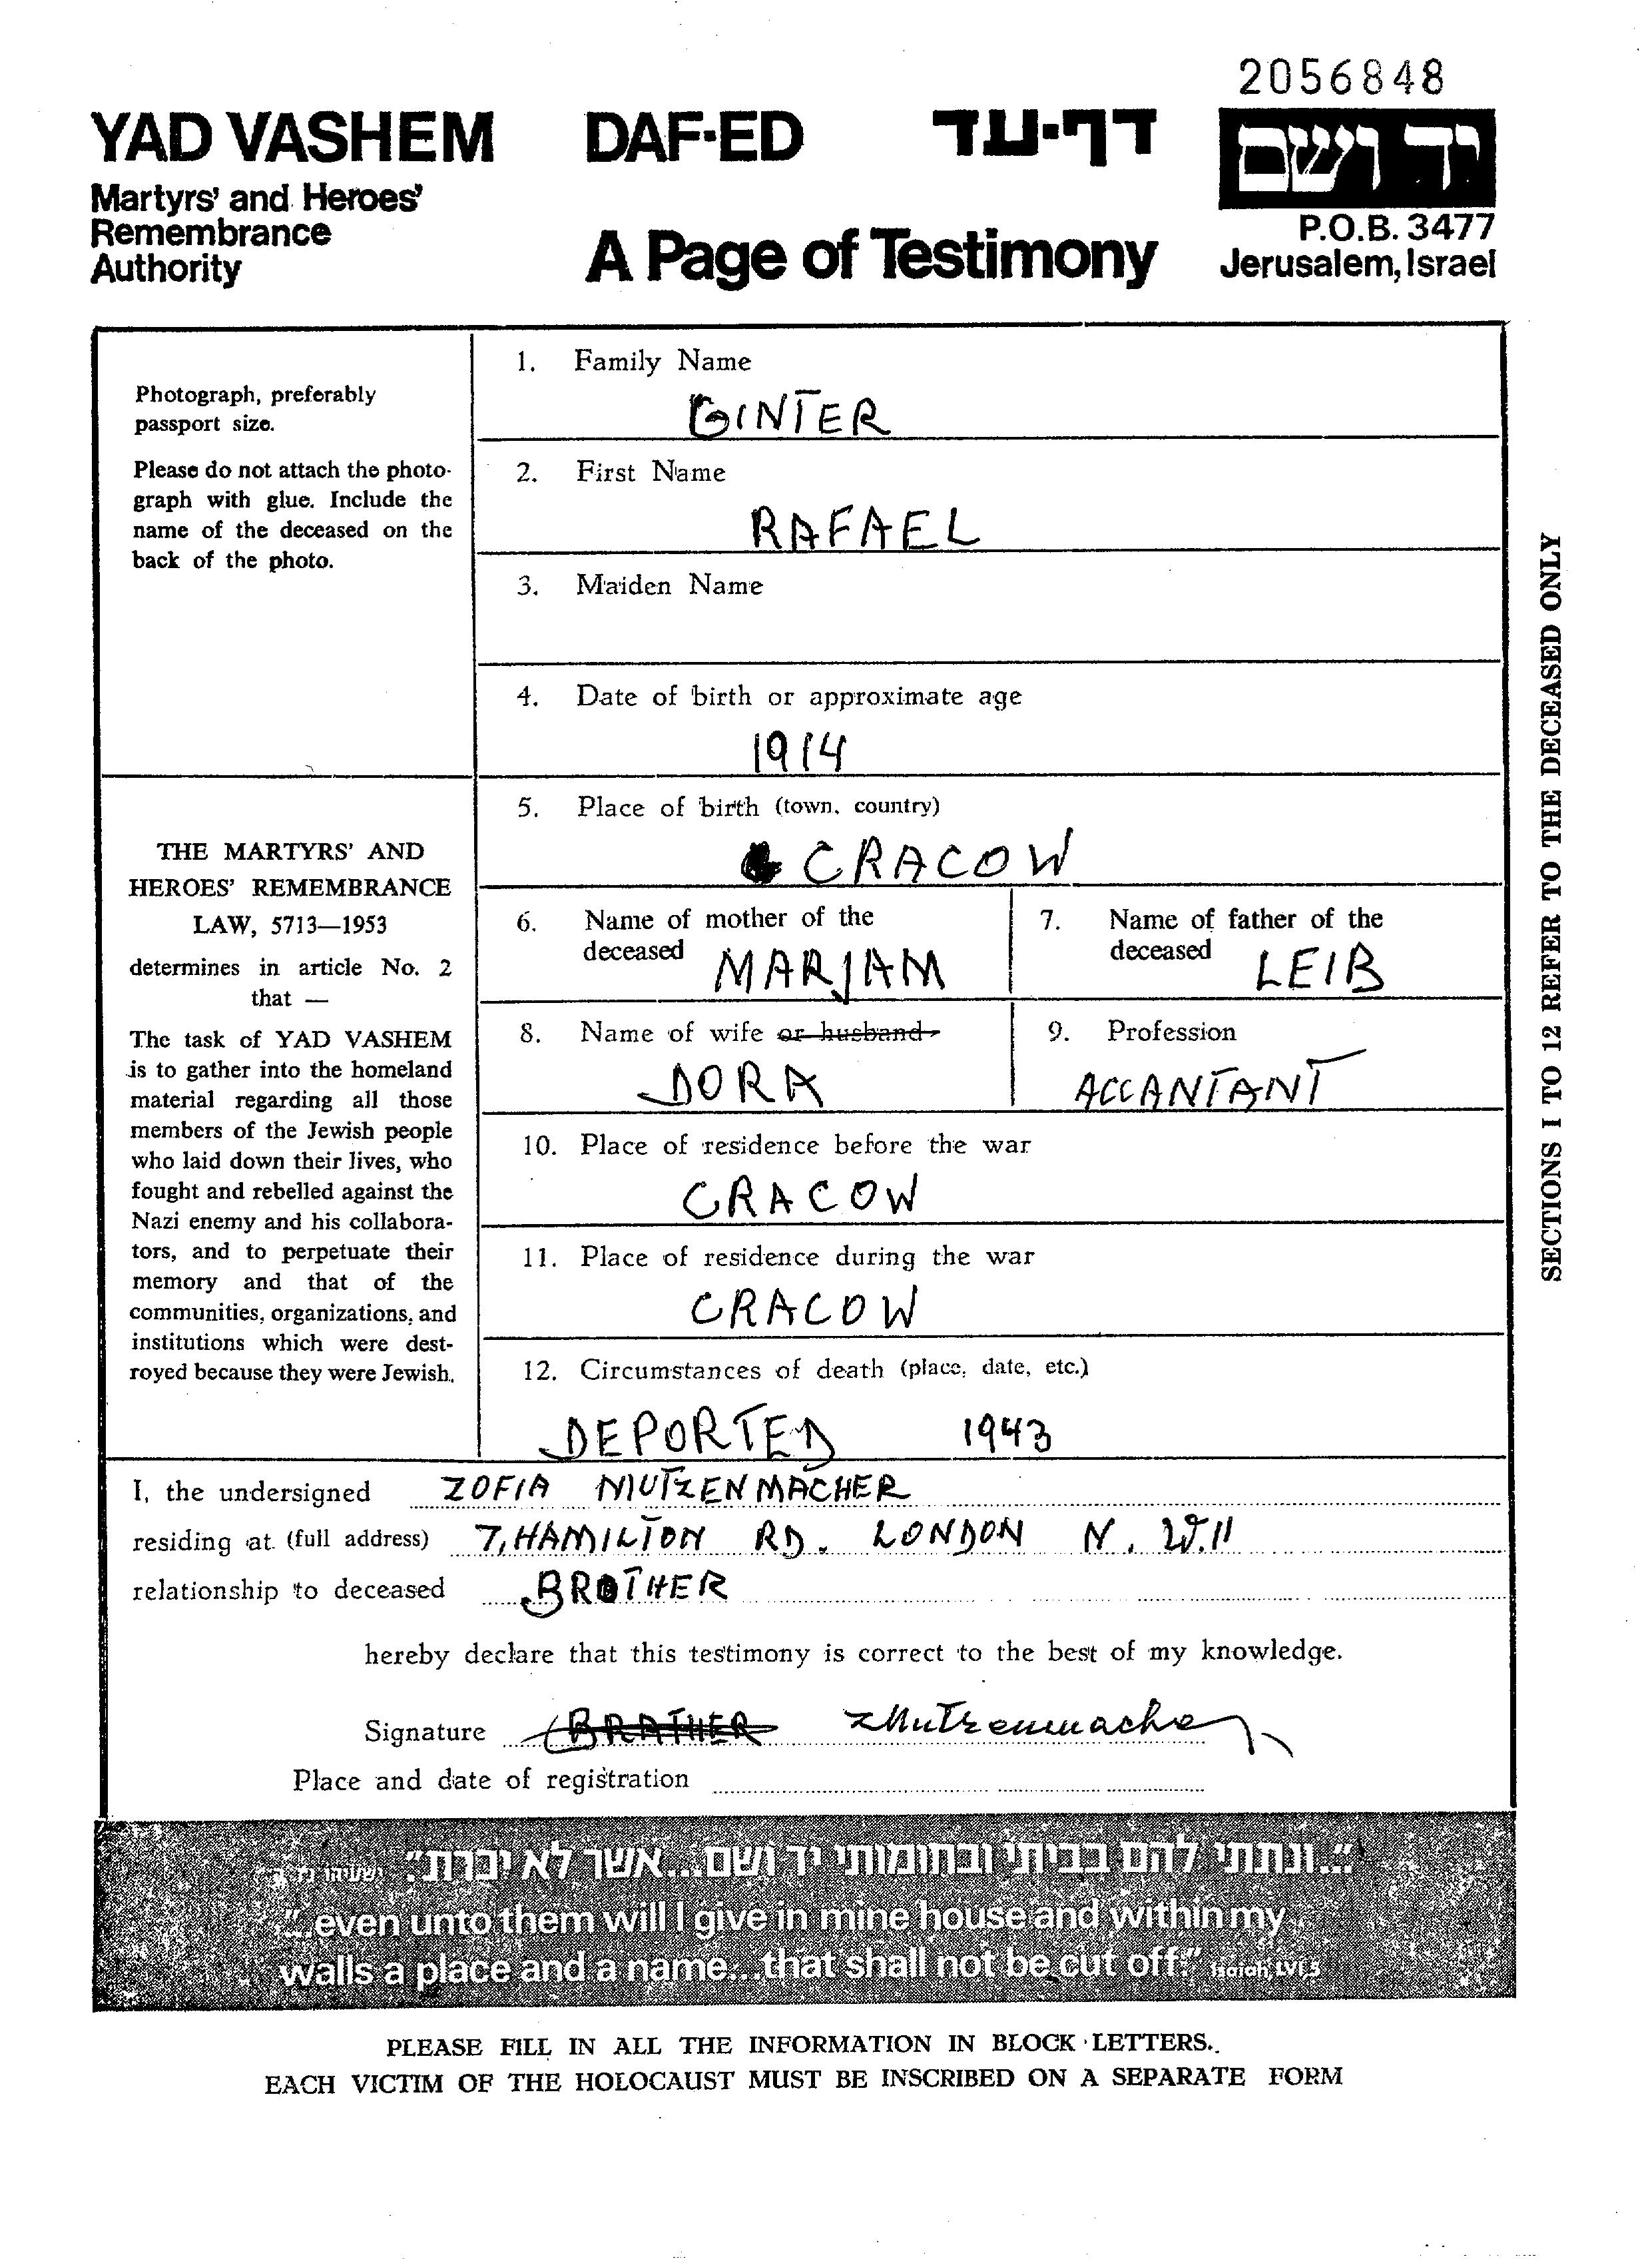 2056848
YAD VASHEM DAF-ED דף-עד יד ושם
Martyrs' and Heroes'
Remembrance
Authority
A Page of Testimony
P.O.B. 3477
Jerusalem, Israel
Photograph, preferably
passport size.
Please do not attach the photo-
graph with glue. Include the
name of the deceased on the
back of the photo.
THE MARTYRS' AND
HEROES' REMEMBRANCE
LAW, 5713—1953
determines in article No. 2
that —
The task of YAD VASHEM
is to gather into the homeland
material regarding all those
members of the Jewish people
who laid down their lives, who
fought and rebelled against the
Nazi enemy and his collabora-
tors, and to perpetuate their
memory and that of the
communities, organizations, and
institutions which were dest-
royed because they were Jewish.
1. Family Name
GINTER
2. First Name
RAFAEL
3. Maiden Name
4. Date of birth or approximate age
1914
5. Place of birth (town, country)
CRACOW
6. Name of mother of the
deceased MARJAM
7. Name of father of the
deceased LEIB
8. Name of wife or husband
DORA
9. Profession
ACCANTANT
10. Place of residence before the war
CRACOW
11. Place of residence during the war
CRACOW
12. Circumstances of death (place, date, etc.)
DEPORTED 1943
SECTIONS 1 TO 12 REFER TO THE DECEASED ONLY
I, the undersigned ZOFIA MUTZENMACHER
residing at (full address) 7, HAMILTON RD. LONDON N. W. 11
relationship to deceased BROTHER
hereby declare that this testimony is correct to the best of my knowledge.
Signature BRATHER ZMutzenmacher
Place and date of registration
"...ונתתי להם בביתי ובחומותי יד ושם...אשר לא יכרת"
"...even unto them will I give in mine house and within my
walls a place and a name...that shall not be cut off." Isaiah, LVI,5
PLEASE FILL IN ALL THE INFORMATION IN BLOCK LETTERS.
EACH VICTIM OF THE HOLOCAUST MUST BE INSCRIBED ON A SEPARATE FORM